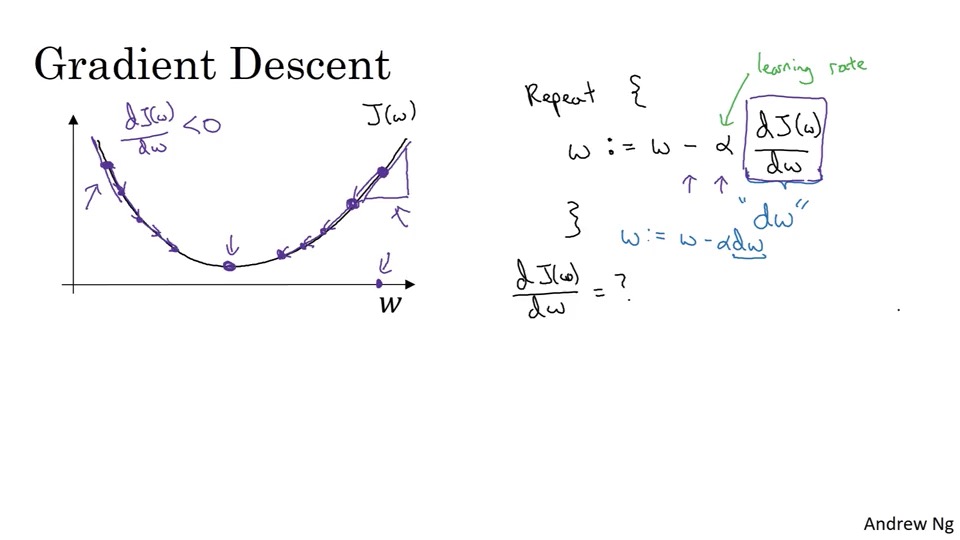 Gradient Descent
dJ(w)/dw < 0
J(w)
w
Repeat {
learning rate
w := w - α dJ(w)/dw
"dw"
}
w := w - αdw
dJ(w)/dw = ?
Andrew Ng